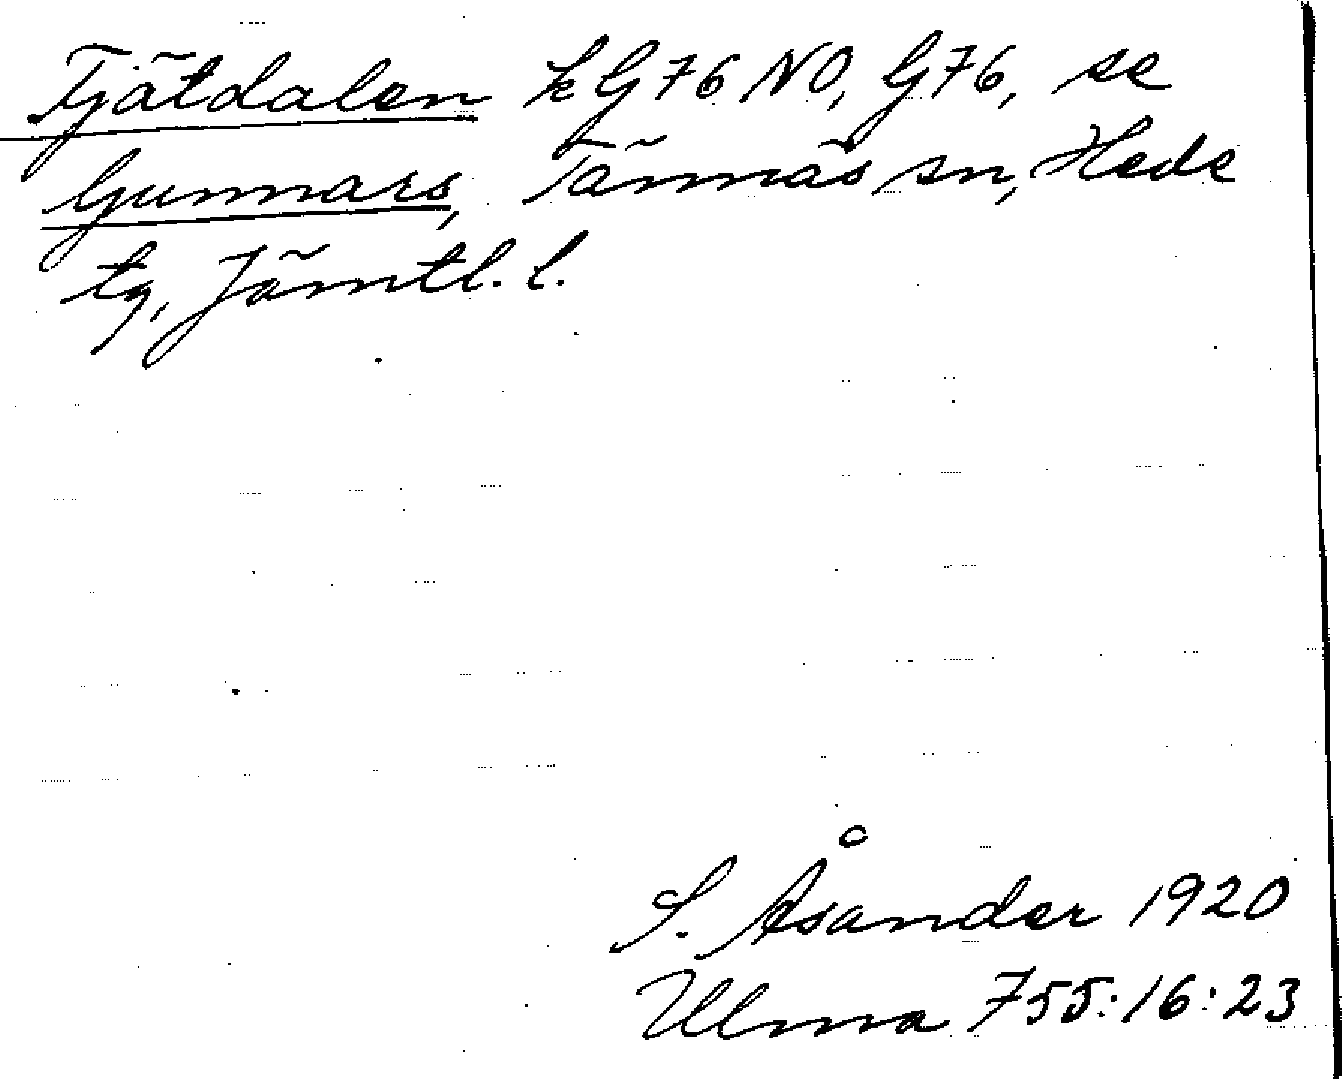 Tjätdalen k G76 NO, G76, se
Gunnars, Tännäs sn, Hede
tg, Jämtl. l.
S. Åsander 1920
Ulma 755:16:23